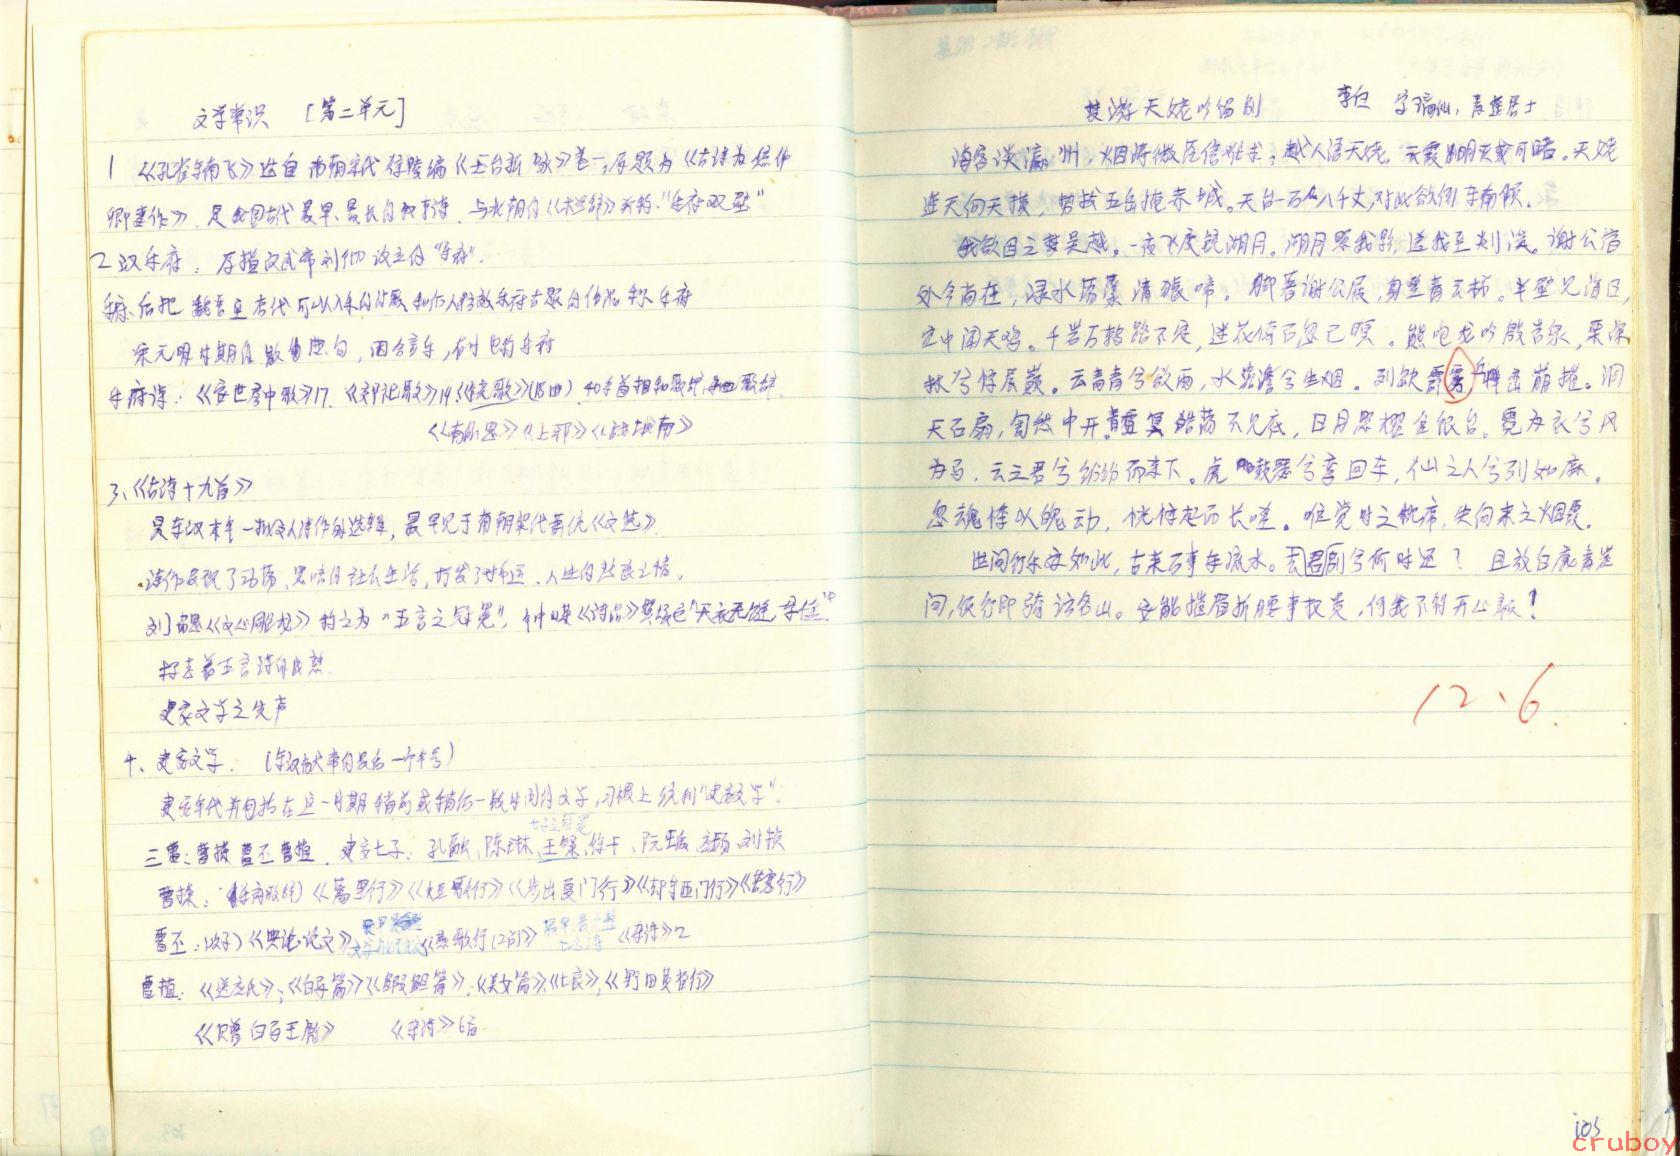 文学常识 [第二单元]
1 《孔雀东南飞》选自南朝宋代徐陵编《玉台新咏》卷一,原题为《古诗为焦仲
卿妻作》. 是我国古代最早、最长的叙事诗. 与北朝的《木兰辞》并称"乐府双璧"
2 汉乐府: 原指汉武帝刘彻设立的"乐府".
后把魏晋至唐代可以入乐的诗歌和后人仿效乐府古题的作品称乐府
宋元明时期的散曲,因合音乐,有时也称乐府
乐府诗:《安世房中歌》17.《郊祀歌》19《铙歌》(18曲) 40多首相和歌辞,
《有所思》《上邪》《战城南》
3、《古诗十九首》
是东汉末年一批文人诗作的选辑, 最早见于南朝梁代萧统《文选》.
诗作反映了动荡、黑暗的社会生活,抒发了对命运、人生的悲哀之情.
刘勰《文心雕龙》称之为"五言之冠冕", 钟嵘《诗品》
标志着五言诗的成熟.
建安文学之先声
4、建安文学. (东汉献帝的最后一个年号)
建安年代并包括在这一时期稍前或稍后一段时间的文学,习惯上统称"建安文学".
七子之冠冕
三曹:曹操 曹丕 曹植. 建安七子: 孔融、陈琳、王粲、徐干、阮瑀、应玚、刘桢
曹操: 《蒿里行》《短歌行》《步出夏门行》《却东西门行》《苦寒行》
曹丕:(次子)《典论·论文》《燕歌行(2首)》 《杂诗》2
曹植:《送应氏》;《白马篇》《鰕䱇篇》;《美女篇》《七哀》;《野田黄雀行》
《赠白马王彪》 《杂诗》6首
梦游天姥吟留别 李白 字谪仙, 青莲居士
海客谈瀛洲,烟涛微茫信难求; 越人语天姥, 云霞明灭或可睹。天姥
连天向天横, 势拔五岳掩赤城。天台一万八千丈,对此欲倒东南倾.
我欲因之梦吴越, 一夜飞度镜湖月。湖月照我影,送我至剡溪。谢公宿
处今尚在, 渌水荡漾清猿啼。脚著谢公屐,身登青云梯。半壁见海日,
空中闻天鸡。千岩万转路不定,迷花倚石忽已暝。熊咆龙吟殷岩泉,栗深
林兮惊层巅。云青青兮欲雨, 水澹澹兮生烟。列缺霹雳,丘峦崩摧。洞
天石扇,訇然中开.青冥浩荡不见底, 日月照耀金银台。霓为衣兮风
为马, 云之君兮纷纷而来下。虎鼓瑟兮鸾回车, 仙之人兮列如麻。
忽魂悸以魄动, 恍惊起而长嗟。惟觉时之枕席, 失向来之烟霞.
世间行乐亦如此, 古来万事东流水。去君别兮何时还? 且放白鹿青崖
间, 须行即骑访名山。安能摧眉折腰事权贵,使我不得开心颜!
12、6.
105
cruboy